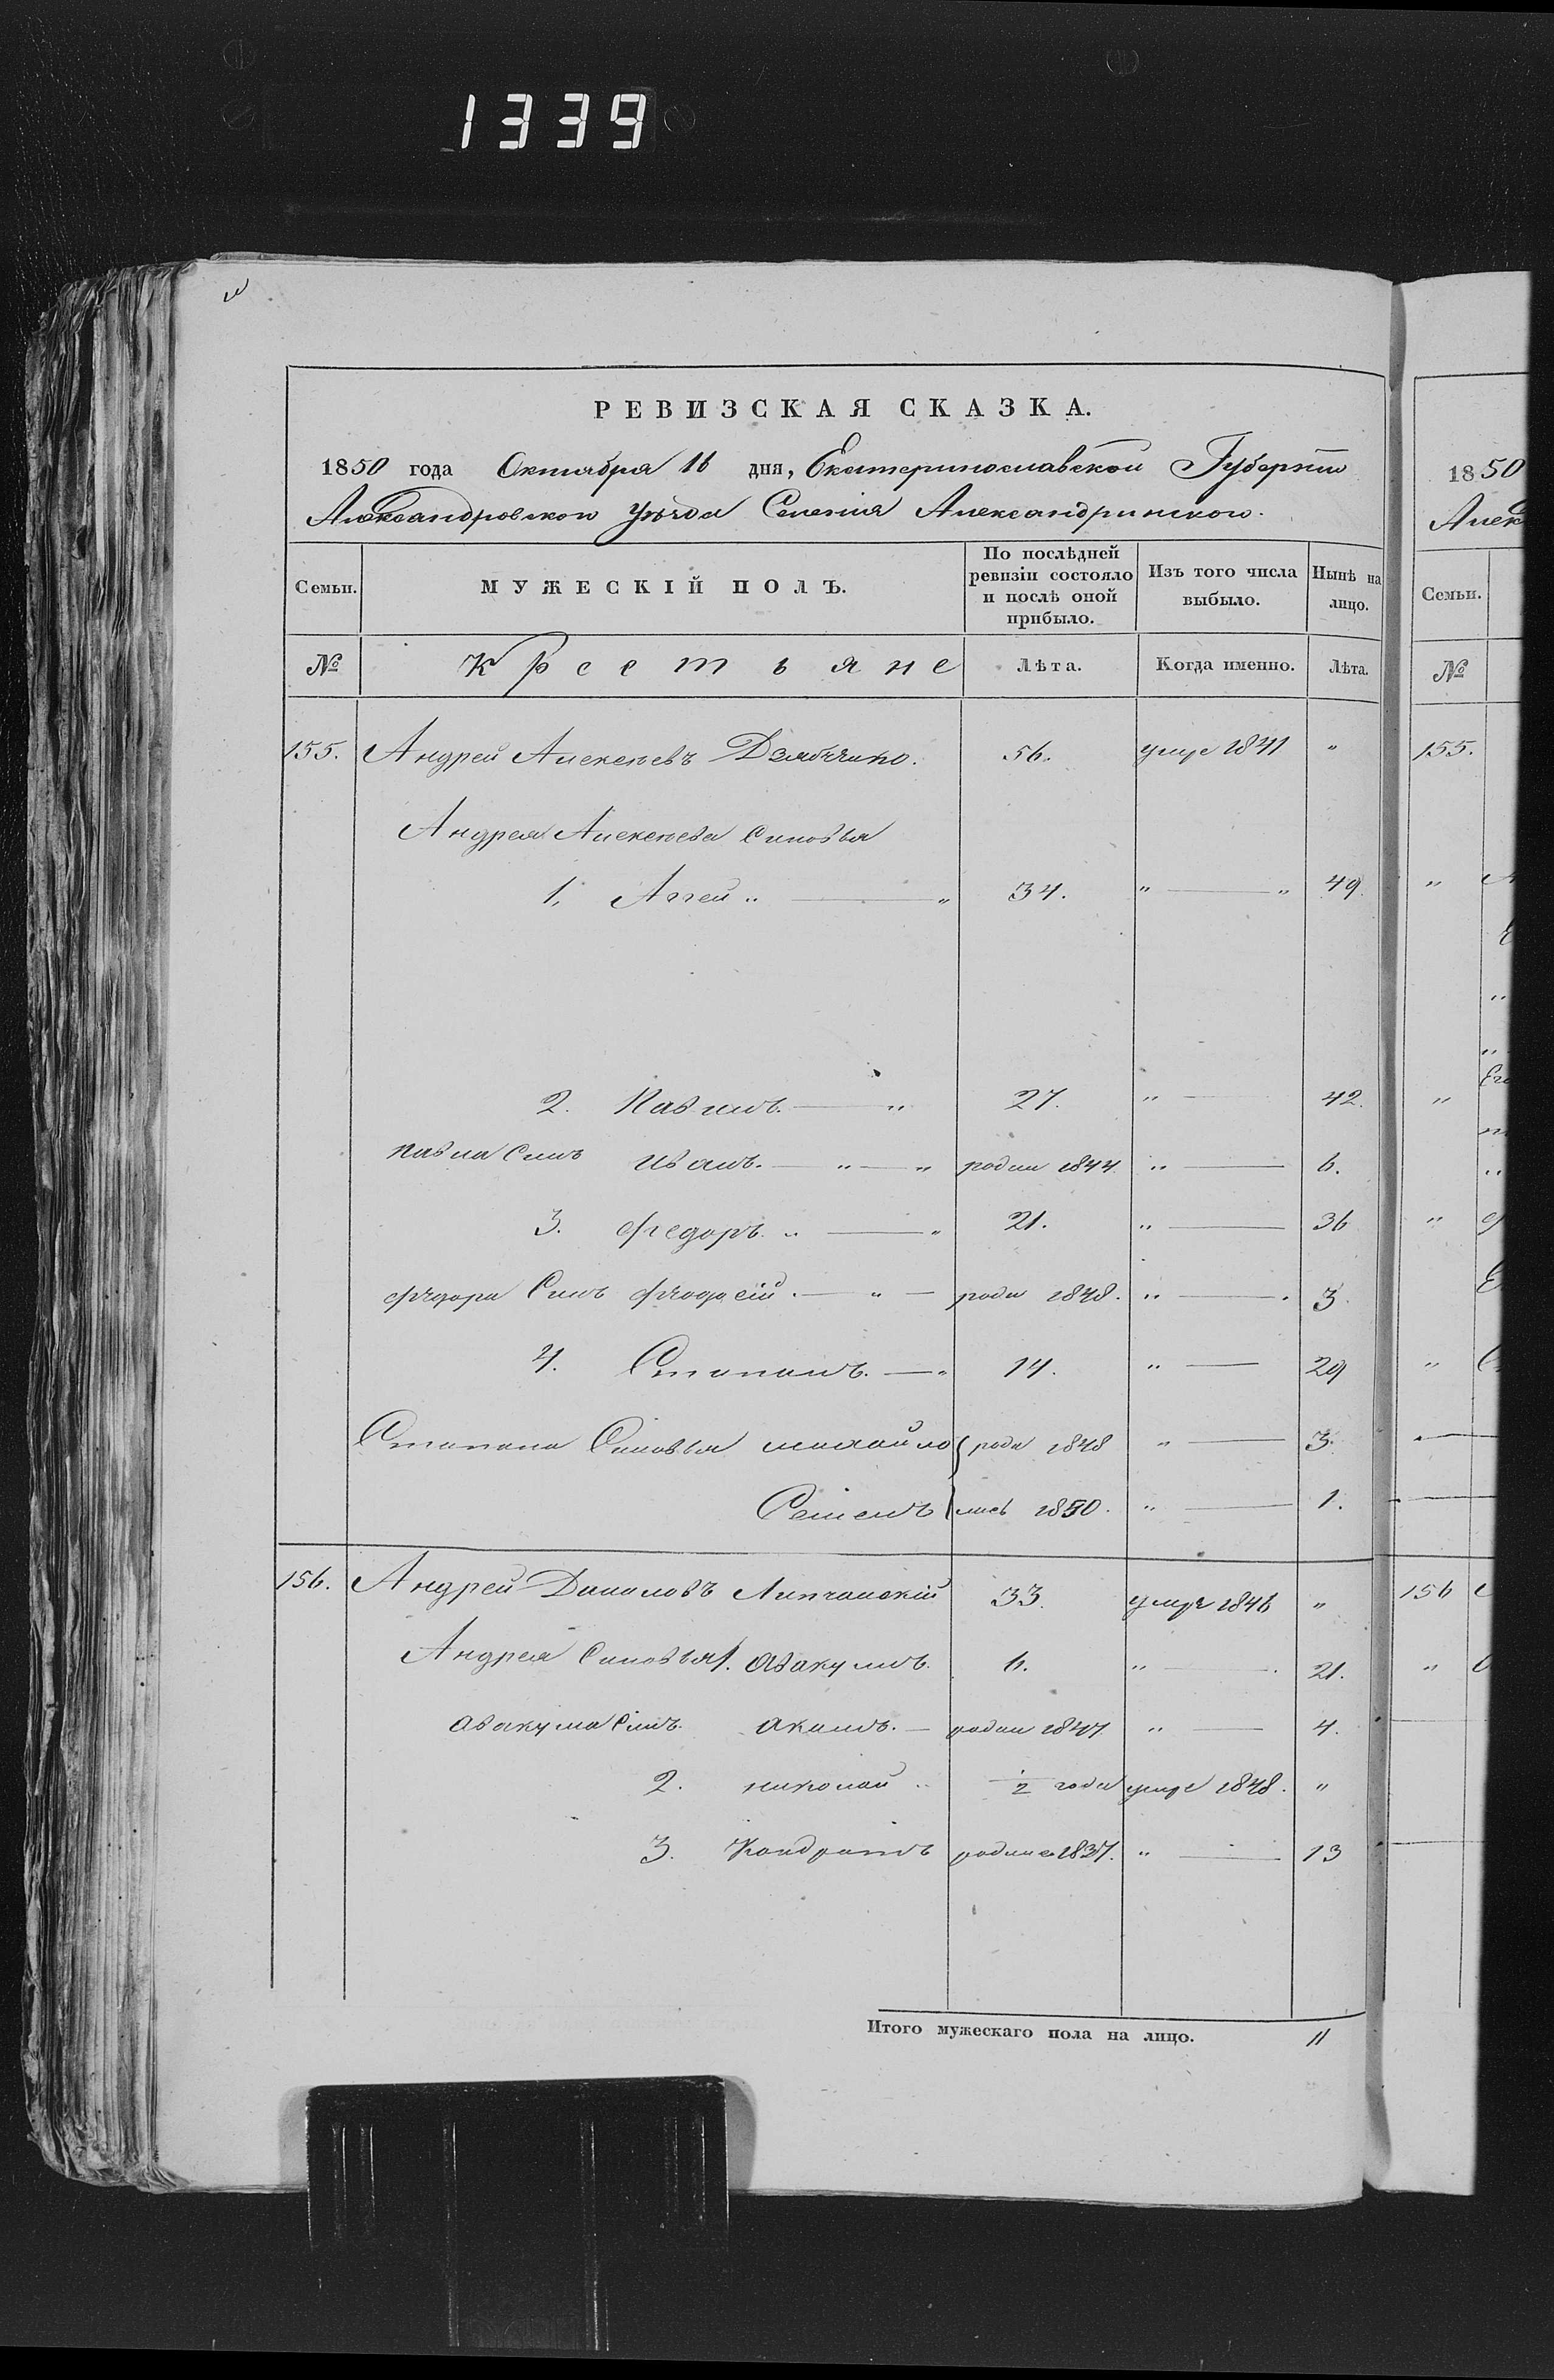 1339
РЕВИЗСКАЯ СКАЗКА.
1850 года Октября 16 дня, Екатеринославской Губерніи
Александровского Уѣзда Селенія Александринского.
Семьи. МУЖЕСКІЙ ПОЛЪ. По послѣдней ревизіи состояло и послѣ оной прибыло. Изъ того числа выбыло. Нынѣ на лицо.
№ Крестьяне Лѣта. Когда именно. Лѣта.
155. Андрей Алексѣевъ 56. умре 1841 "
Андрея Алексѣева Сыновья
1. Аггей " — " 34. " — " 49.
2. Павелъ. — " 27. " — 42.
Павла Сынъ Иванъ. — " — " родил 1844 " — 6.
3. Федоръ. " — " 21. " — 36
Федора Сынъ Феодосій. — " — роди 1848. " — . 3.
4. Степанъ. — " 14. " — 29
Степана Сыновья михайло роди 1848 " — 3.
Семенъ лись 1850. " — 1.
156. Андрей Даниловъ Липчанскій 33. умре 1846 "
Андрея Сыновья 1. Авакумъ. 6. " — . 21.
Авакума Сынъ. Акимъ. — родил 1847 " — 4.
2. николай " 1/2 года умре 1848. "
3. Кондратъ родился 1837. " — 13
Итого мужескаго пола на лицо. 11
1850
Алек
Семьи.
№
155.
156